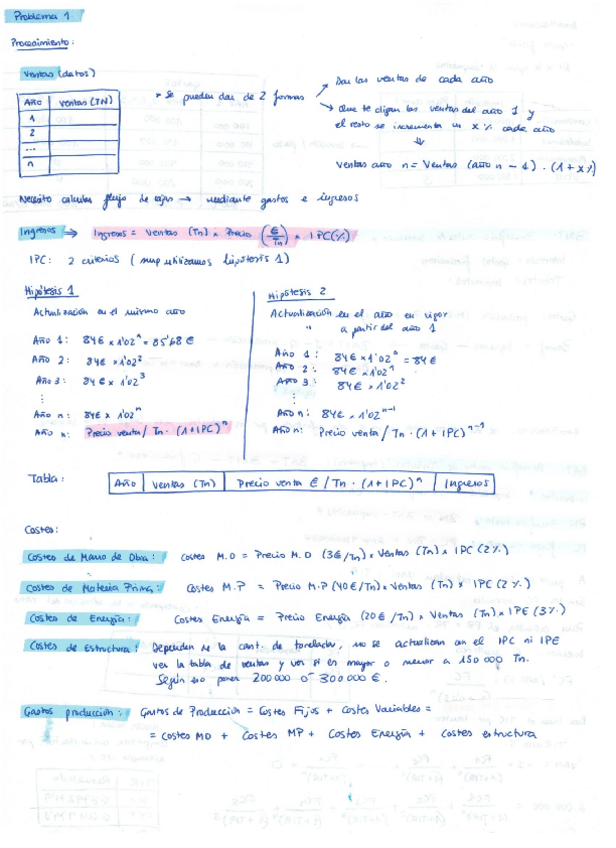 Problema 1
Procedimiento:
Ventas (datos)
Año | Ventas (TN)
1
2
...
n
* Se pueden dar de 2 formas
→ Dan las ventas de cada año
→ Que te digan las ventas del año 1 y
el resto se incrementa un x % cada año
↓
Ventas año n = Ventas (año n - 1) · (1 + x %)
Necesito calcular flujo de cajas → mediante gastos e ingresos
Ingresos → Ingresos = Ventas (Tn) x Precio (€/Tn) x IPC (%)
IPC: 2 criterios ( utilizamos hipótesis 1)
Hipótesis 1
Actualización en el mismo año
Año 1: 84€ x 1'02¹ = 85'68 €
Año 2: 84€ x 1'02²
Año 3: 84€ x 1'02³
⋮
Año n: 84€ x 1'02ⁿ
Año n: Precio venta/Tn · (1+IPC)ⁿ
Hipótesis 2
Actualización en el año en vigor
" a partir del año 1
Año 1: 84€ x 1'02⁰ = 84€
Año 2: 84€ x 1'02¹
Año 3: 84€ x 1'02²
⋮
Año n: 84€ x 1'02ⁿ⁻¹
Año n: Precio venta/Tn · (1+IPC)ⁿ⁻¹
Tabla: Año | Ventas (Tn) | Precio venta €/Tn · (1+IPC)ⁿ | Ingresos
Costes:
Costes de Mano de Obra: Costes M.O = Precio M.O (3€/Tn) x Ventas (Tn) x IPC (2%)
Costes de Materia Prima: Costes M.P = Precio M.P (40€/Tn) x Ventas (Tn) x IPC (2%)
Costes de Energía: Costes Energía = Precio Energía (20€/Tn) x Ventas (Tn) x IPE (3%)
Costes de Estructura: Dependen de la cant. de toneladas, no se actualizan con el IPC ni IPE
ver la tabla de ventas y ver si es mayor o menor a 150 000 Tn.
Según eso poner 200 000 ó 300 000 €.
Gastos producción: Gastos de Producción = Costes Fijos + Costes Variables =
= Costes MO + Costes MP + Costes Energía + Costes estructura